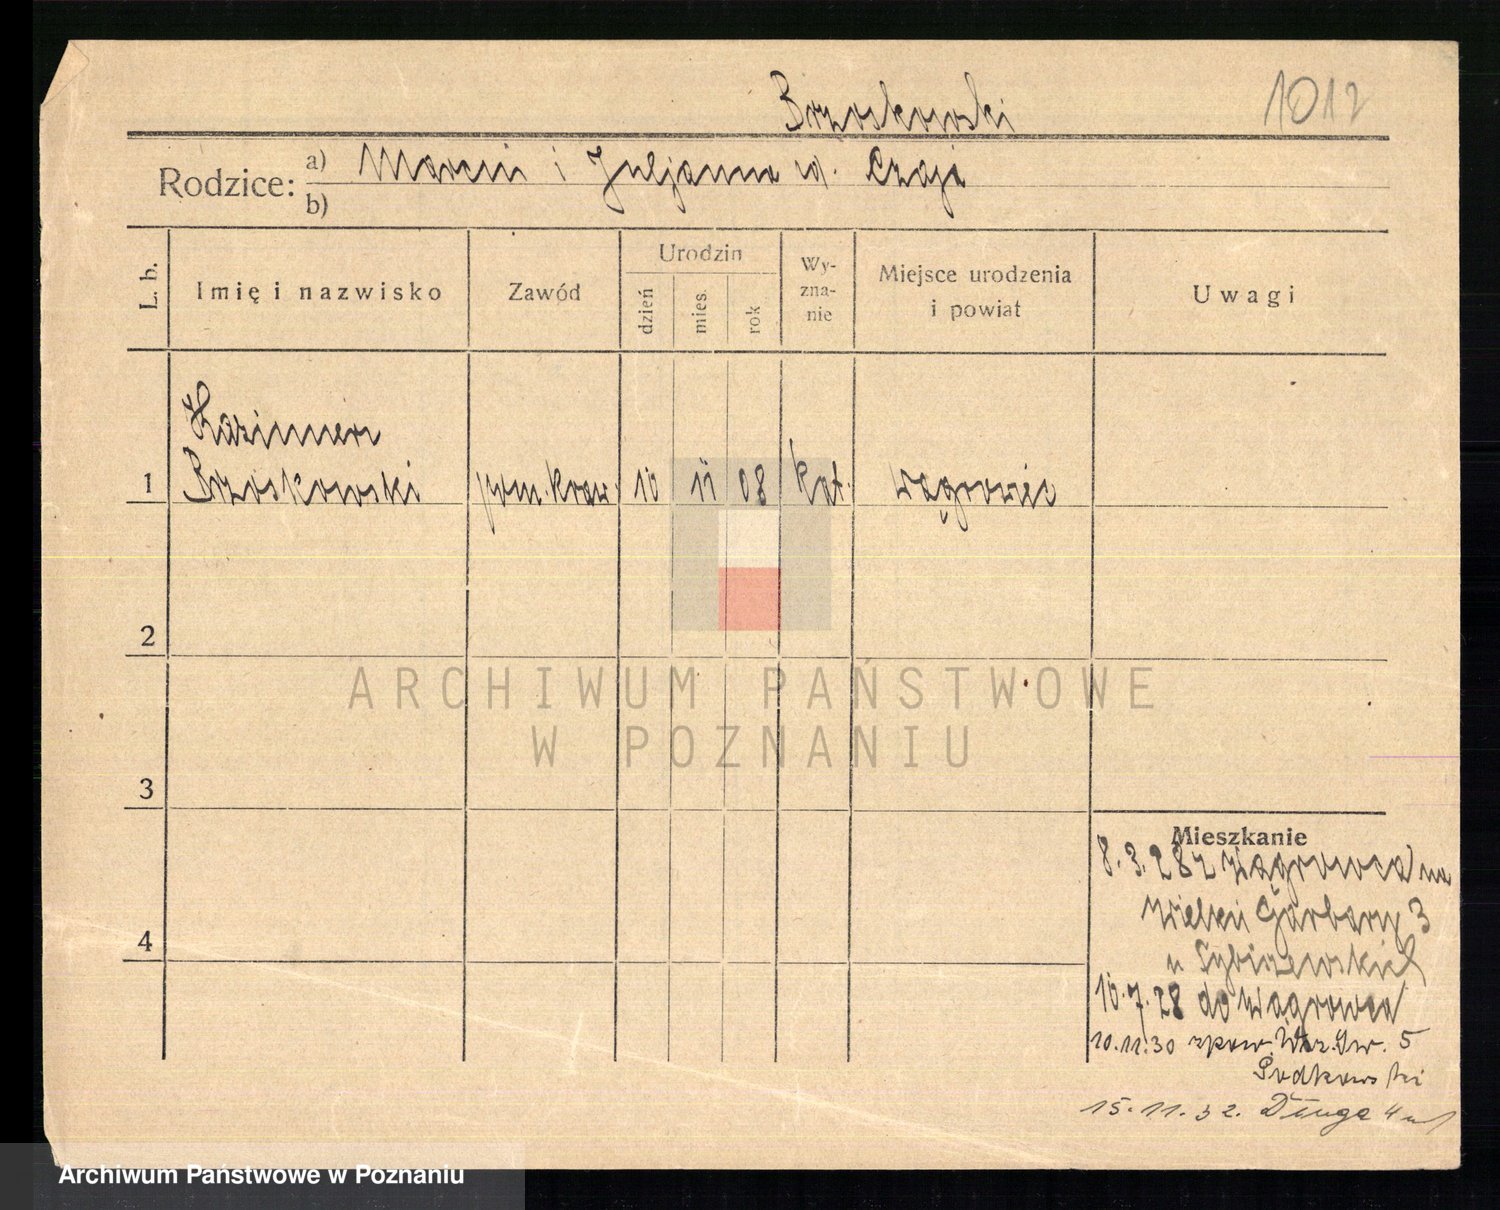 Brzoskowski 1012
Rodzice: a) Marcin i Juljanna Czaja
b)
L. b. Imię i nazwisko Zawód Urodzin dzień mies. rok Wyznanie Miejsce urodzenia i powiat Uwagi
Kazimierz
1 Brzoskowski pom. kraw. 10 11 08 kat. Wągrowiec
2
3
4
Mieszkanie
8.3.28 z Wągrowca na
Wielkie Garbary 3
u
10.7.28 do Wągrowca
10.11.30 zpow. 5
15.11.32. Długa 4
ARCHIWUM PAŃSTWOWE
W POZNANIU
Archiwum Państwowe w Poznaniu